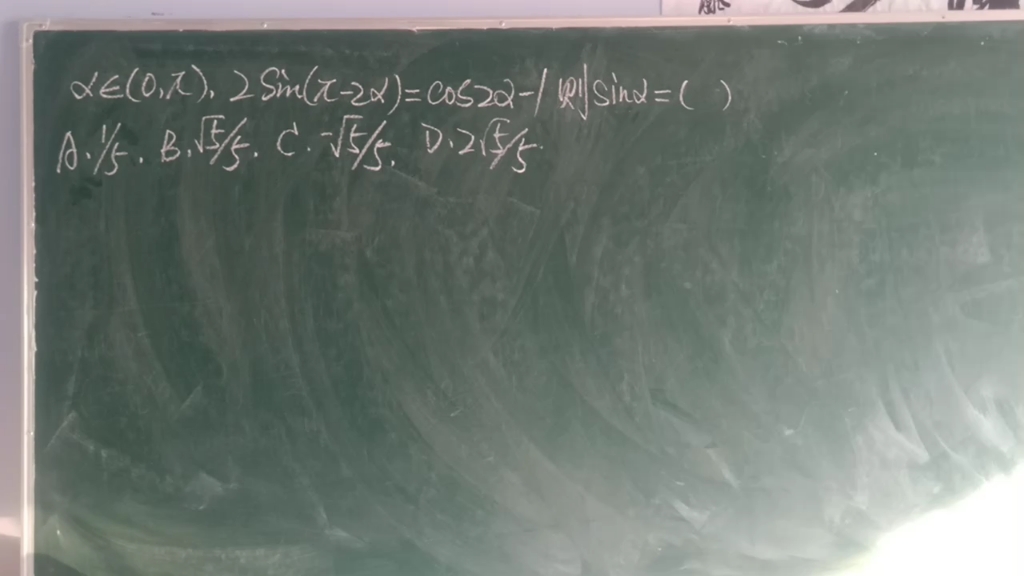 α∈(0,π). 2Sin(π-2α)=cos2α-1 则sinα=( )
A.1/5. B.√5/5. C.-√5/5. D.2√5/5.